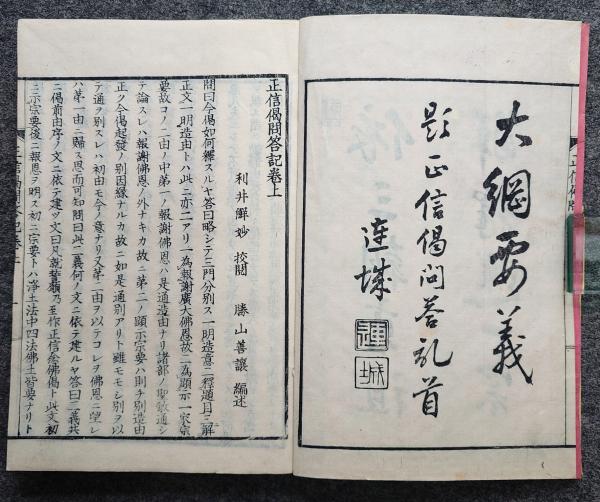 大綱要義
題正信偈問答記首
連城
連城
正信偈問答記卷上
利井鮮妙 校閲 勝山善讓 編述
問曰今偈如何釋スルヤ答曰略シテ三門分別ス一明造意二釋題目三解
正文一明造由トハ此ニ亦二アリ一為報謝廣大佛恩故二為顯示一家宗
要故コノ二由ノ中第一ノ報謝佛恩ハ是通造由ナリ諸部ノ聖教通シ
テ論スレハ報謝佛恩ノ外ナキカ故ニ第二ノ顯示宗要ハ則チ別造由
正ク今偈起發ノ別因縁ナルカ故ニ如是通別アリト雖モモシ別ヲ以
テ通ヲ別スレハ初由モ今ノ意ナリ又第二由ヲ以テコレヲ佛恩ニ望レ
ハ第一由ニ歸ス思而可知問曰此二義何ノ文ニ依テ建ルヤ答曰二義共
ニ偈前由序ノ文ニ依テ建ツ文曰爾就誓願乃至作正信念佛偈ト此文初
ニ示宗要後ニ報恩ヲ明ス初ニ宗要トハ淨土法中四法佛土皆要ナリト
正信偈問答記卷上
一
正信偈問